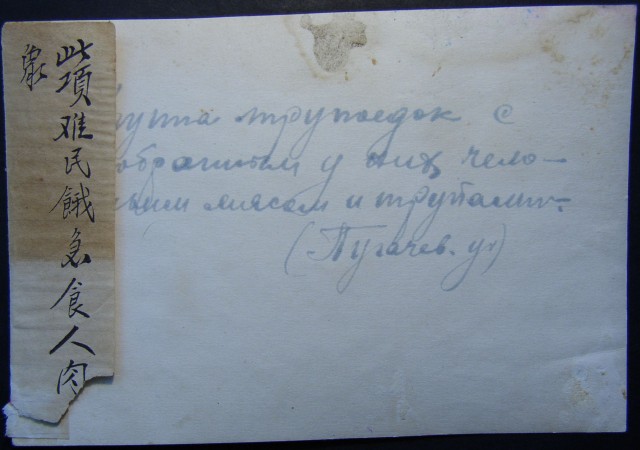 此項难民餓急食人肉
уппа трупоедок с
обранным у них чело-
ким мясом и трупами.-
(Пугачев. у.)